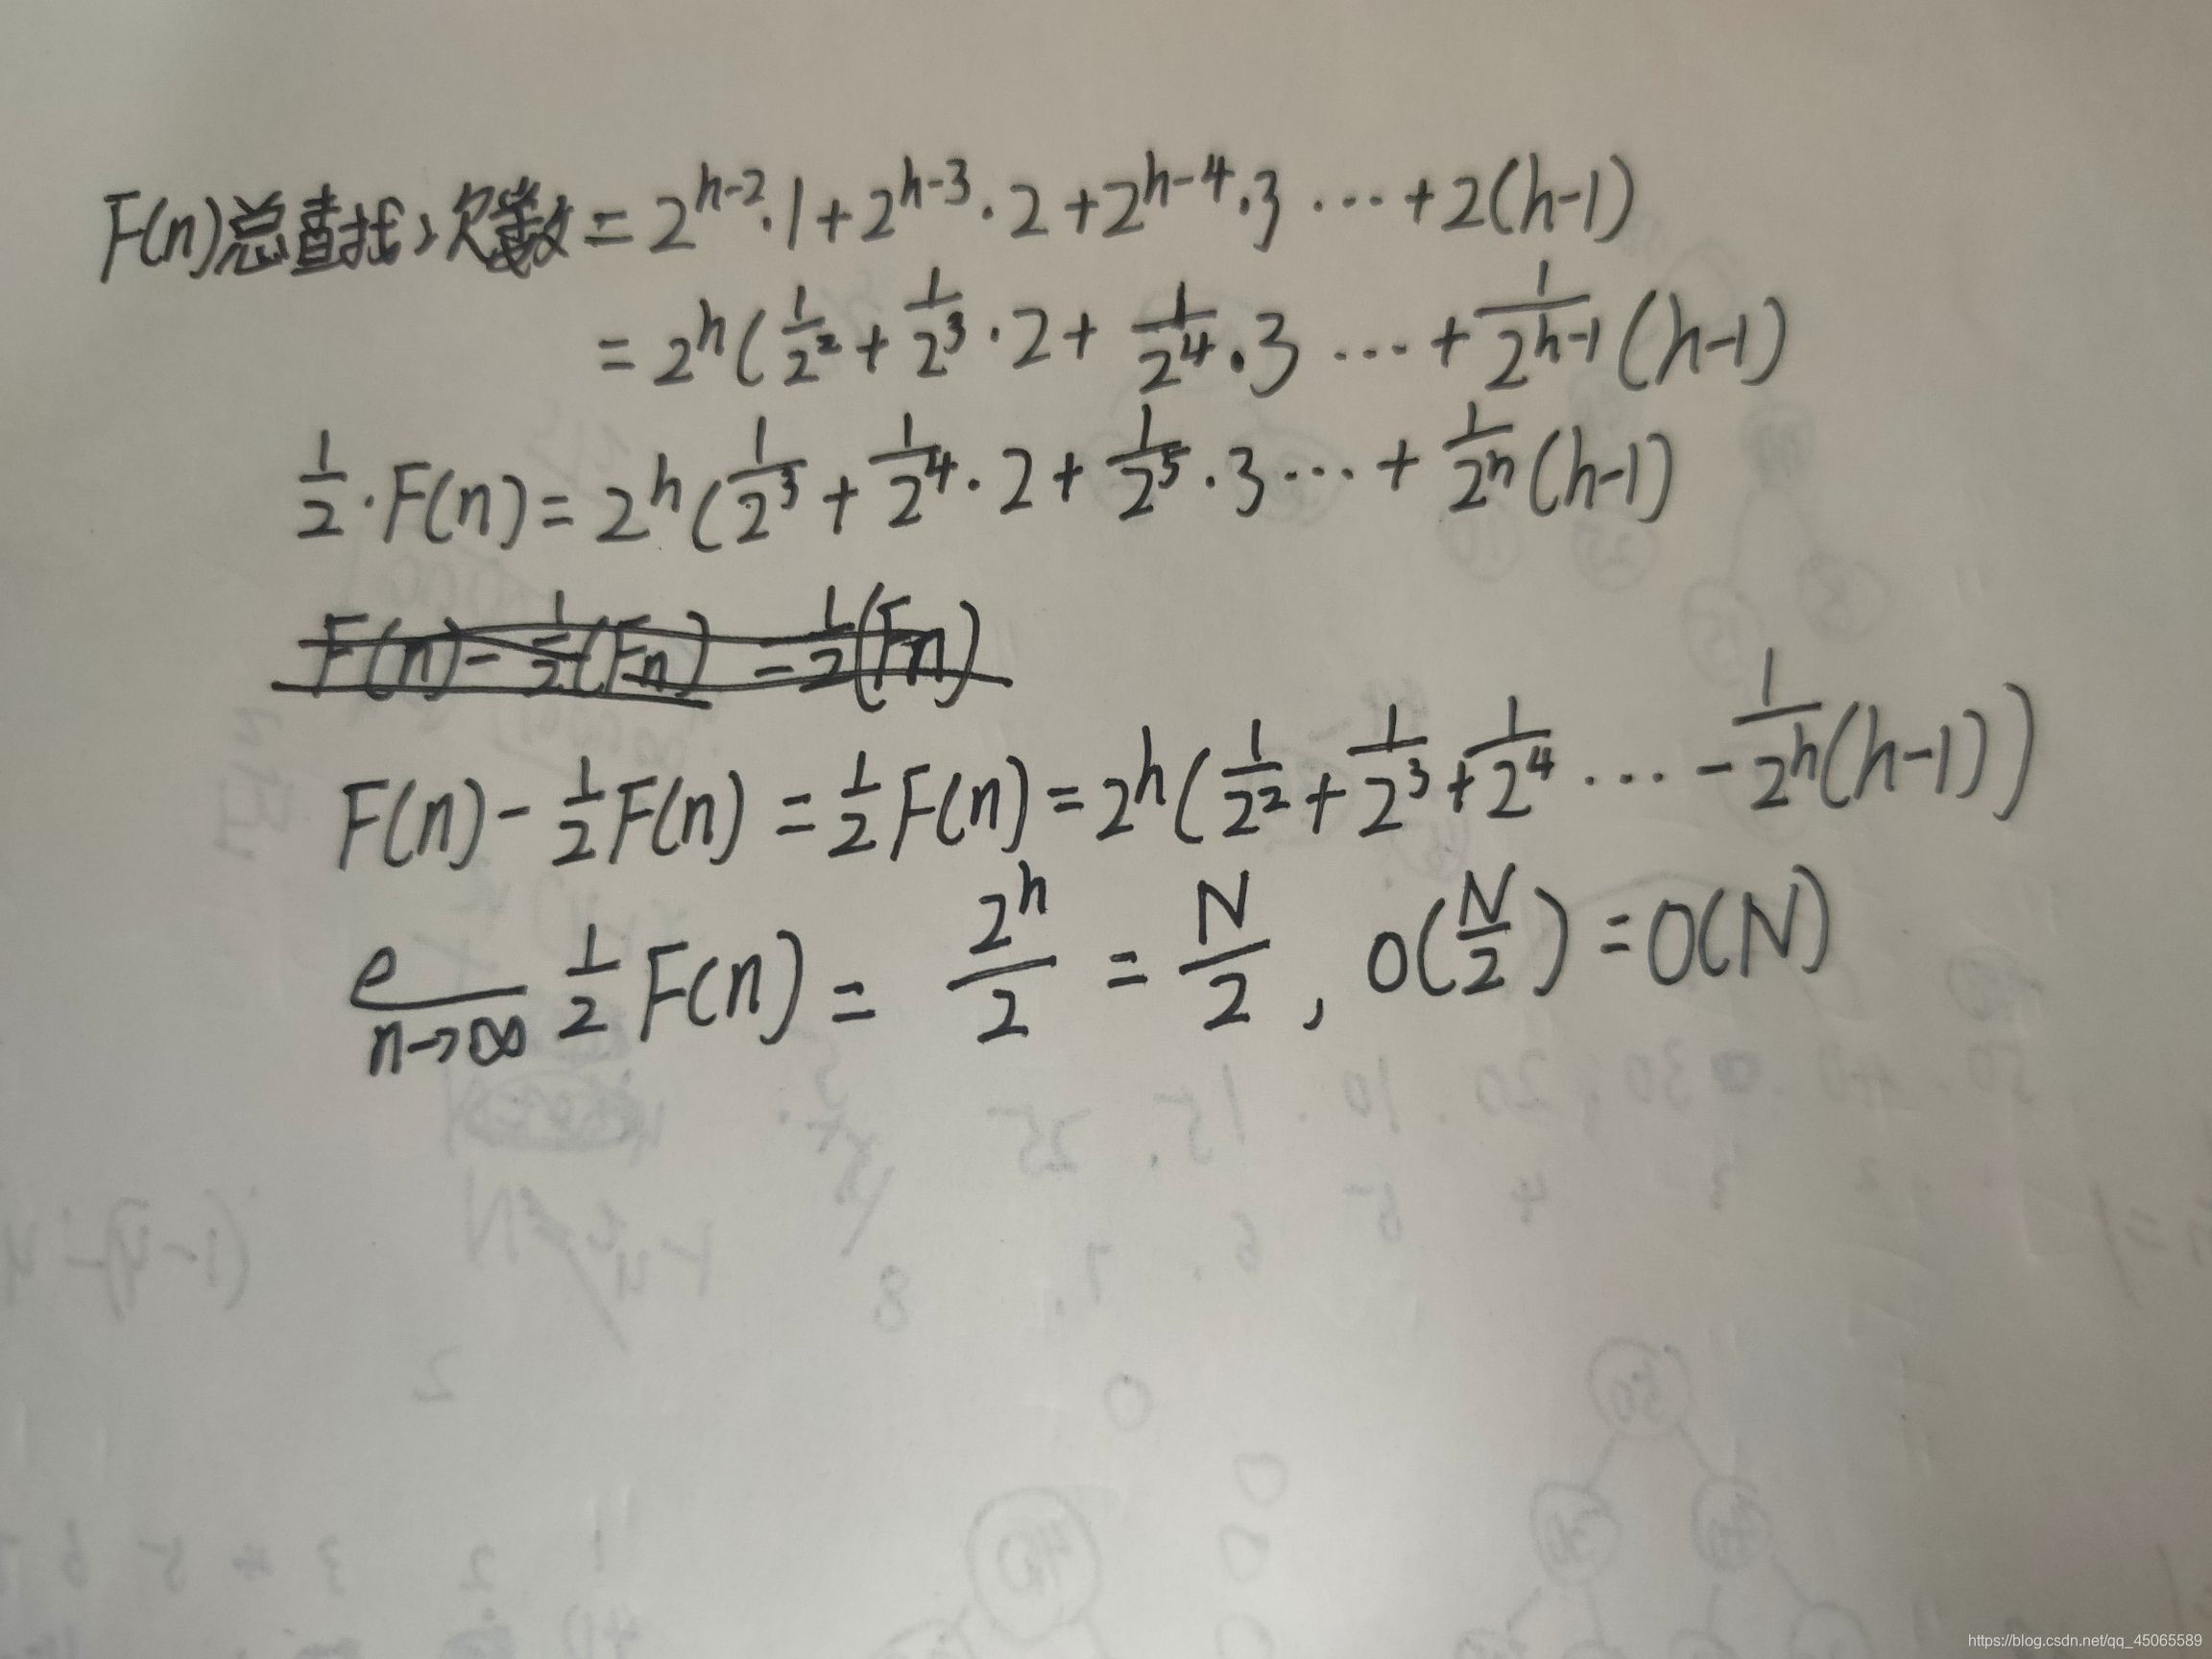 F(n)总查找次数 = 2^{h-2}·1 + 2^{h-3}·2 + 2^{h-4}·3 ··· + 2(h-1)
= 2^h ( \frac{1}{2^2} + \frac{1}{2^3}·2 + \frac{1}{2^4}·3 ··· + \frac{1}{2^{h-1}}(h-1)
\frac{1}{2}·F(n) = 2^h ( \frac{1}{2^3} + \frac{1}{2^4}·2 + \frac{1}{2^5}·3 ··· + \frac{1}{2^h}(h-1)
F(n) - \frac{1}{2}(Fn) = \frac{1}{2}(Fn)
F(n) - \frac{1}{2}F(n) = \frac{1}{2}F(n) = 2^h ( \frac{1}{2^2} + \frac{1}{2^3} + \frac{1}{2^4} ··· - \frac{1}{2^h}(h-1))
\frac{e}{n→∞} \frac{1}{2}F(n) = \frac{2^h}{2} = \frac{N}{2}, O(\frac{N}{2}) = O(N)
https://blog.csdn.net/qq_45065589